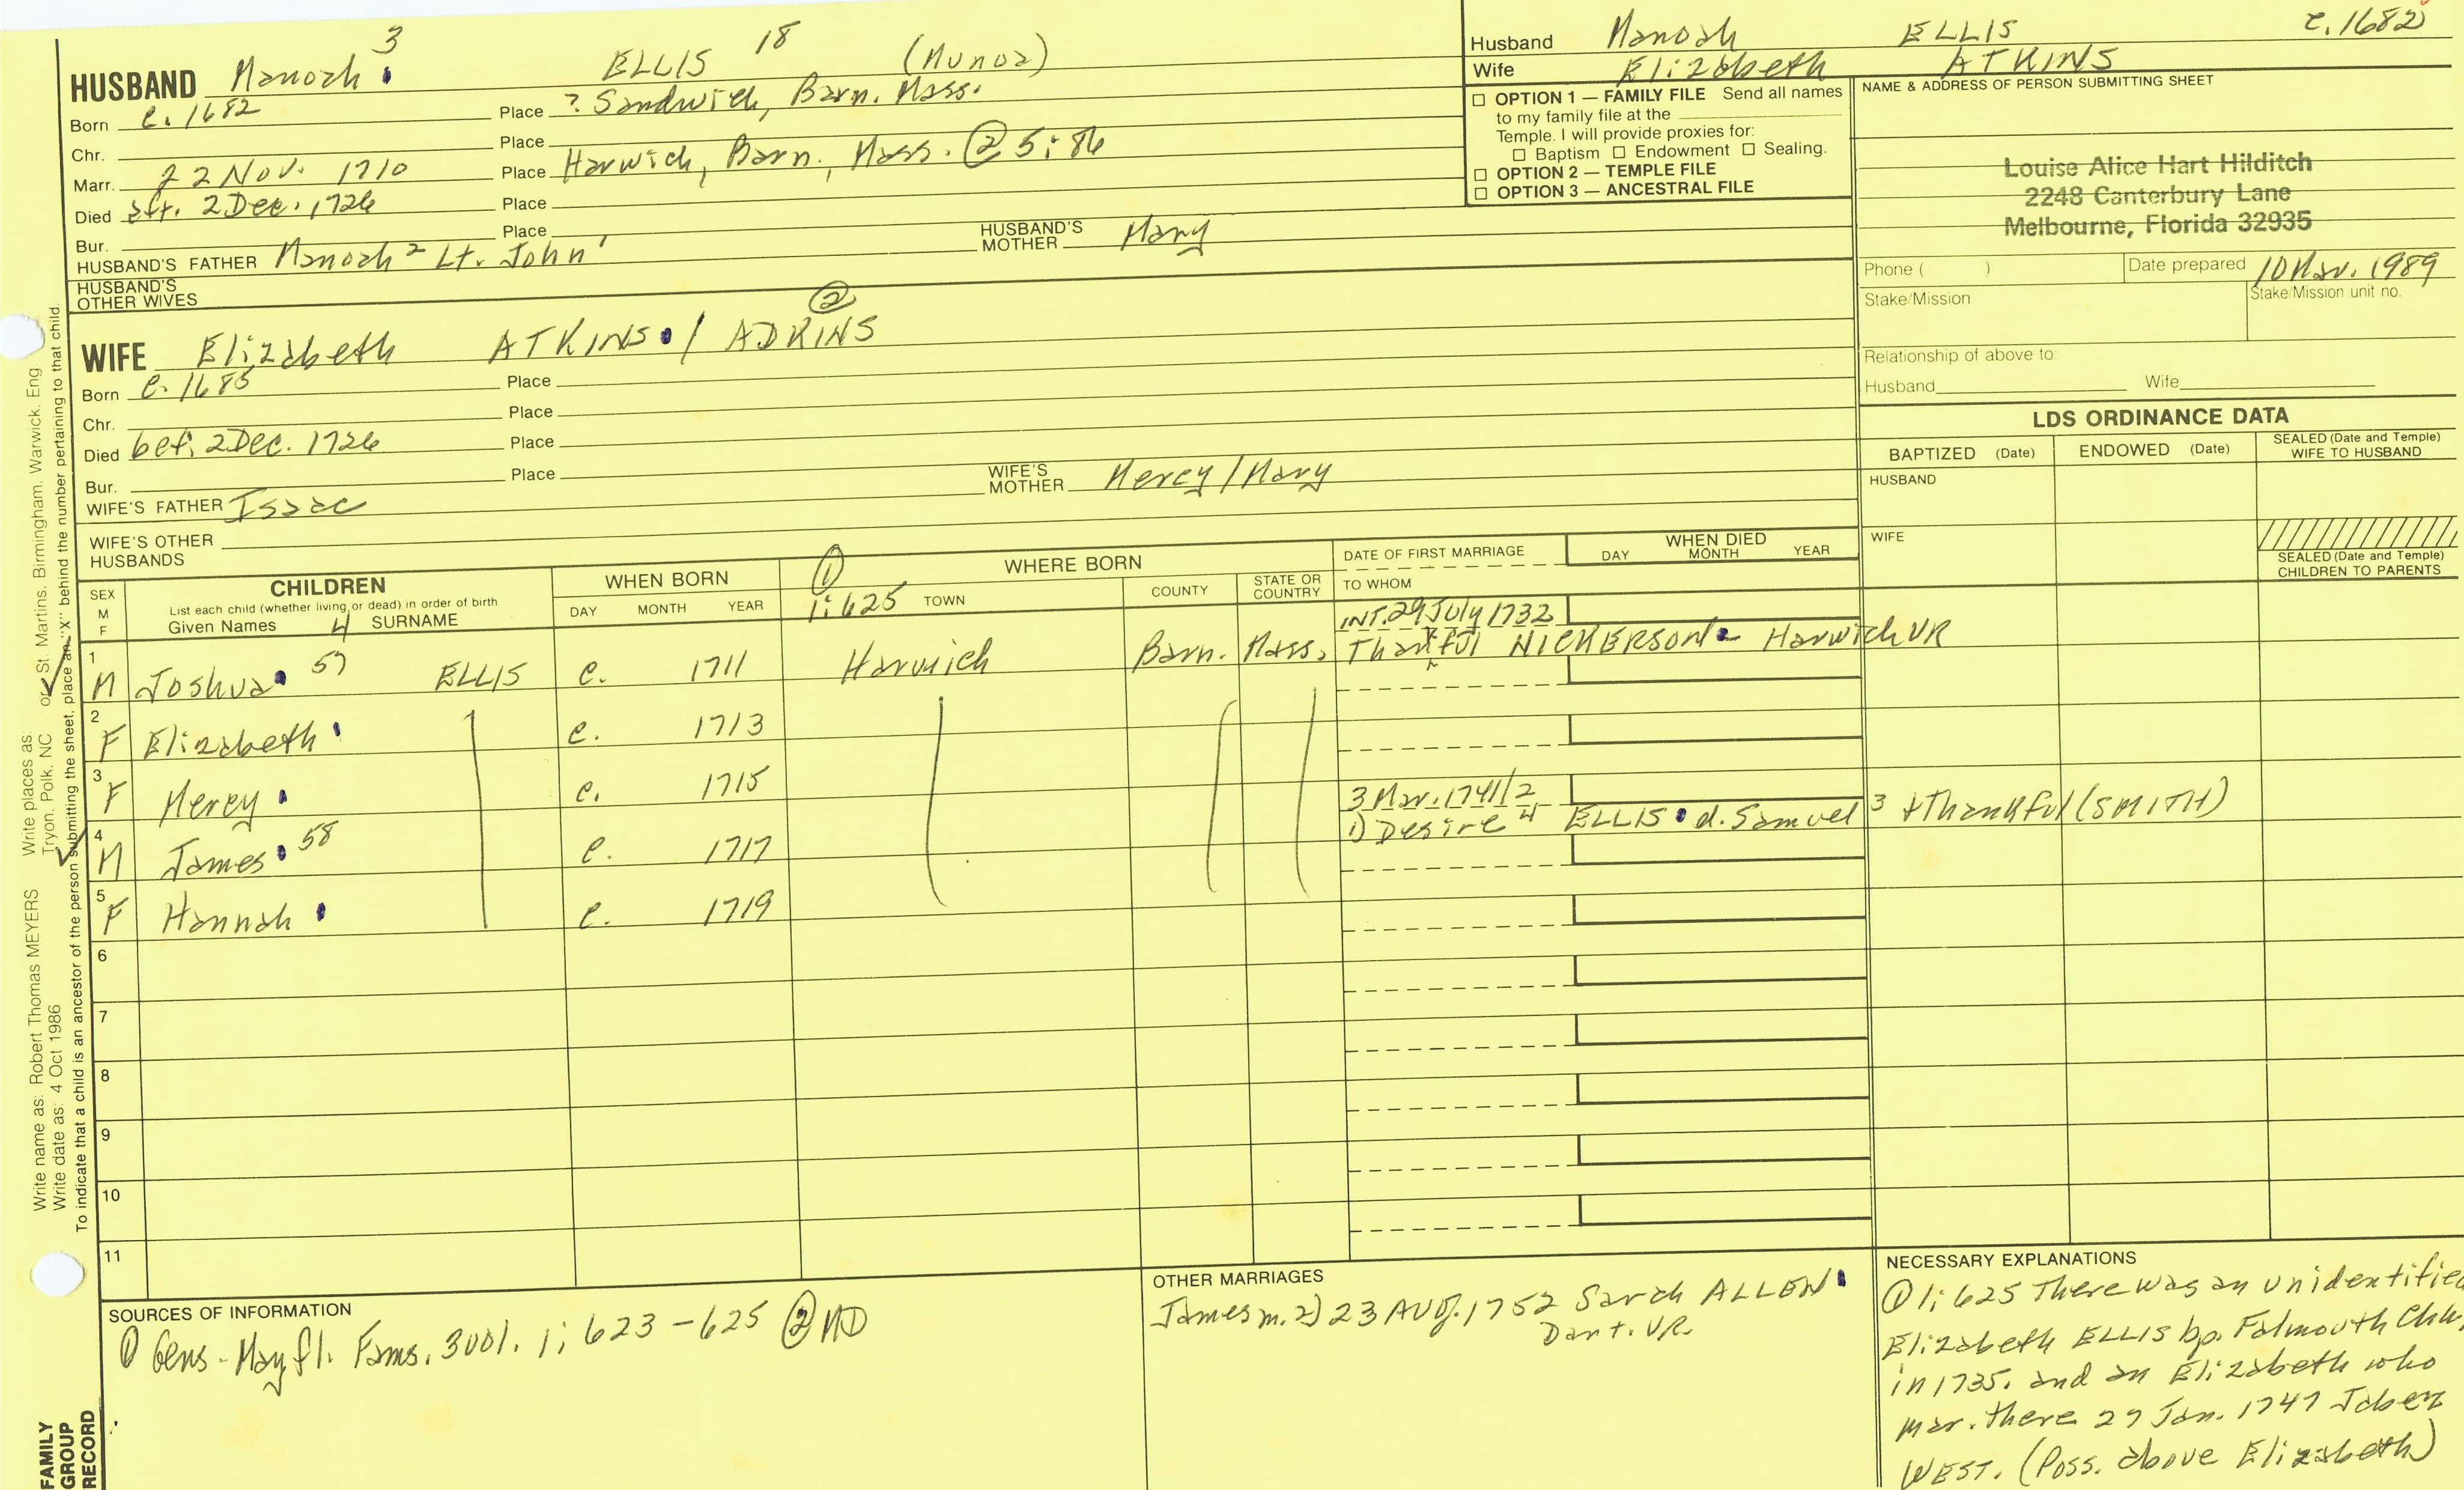 HUSBAND Manoah 3 ELLIS 18 (Munoa)
Born c. 1682 Place ? Sandwich, Barn. Mass.
Chr. Place
Marr. 22 Nov. 1710 Place Harwich, Barn, Mass. ② 5:86
Died aft. 2 Dec. 1726 Place
Bur. Place
HUSBAND'S FATHER Manoah 2 Lt. John 1 HUSBAND'S MOTHER Mary
HUSBAND'S OTHER WIVES
Husband Manoah ELLIS c. 1682
Wife Elizabeth ATKINS
☐ OPTION 1 — FAMILY FILE Send all names
to my family file at the
Temple. I will provide proxies for:
☐ Baptism ☐ Endowment ☐ Sealing.
☐ OPTION 2 — TEMPLE FILE
☐ OPTION 3 — ANCESTRAL FILE
NAME & ADDRESS OF PERSON SUBMITTING SHEET
Louise Alice Hart Hilditch
2248 Canterbury Lane
Melbourne, Florida 32935
Phone ( ) Date prepared 10 Mar. 1989
Stake/Mission Stake/Mission unit no.
Relationship of above to
Husband Wife
②
WIFE Elizabeth ATKINS / ADKINS
Born c. 1685 Place
Chr. Place
Died bef. 2 Dec. 1726 Place
Bur. Place
WIFE'S FATHER Isaac WIFE'S MOTHER Mercy/Mary
WIFE'S OTHER HUSBANDS
LDS ORDINANCE DATA
BAPTIZED (Date) ENDOWED (Date) SEALED (Date and Temple) WIFE TO HUSBAND
HUSBAND
WIFE
SEALED (Date and Temple) CHILDREN TO PARENTS
SEX M F
CHILDREN
List each child (whether living or dead) in order of birth
Given Names 4 SURNAME
WHEN BORN
DAY MONTH YEAR
① 1:625
WHERE BORN
TOWN COUNTY STATE OR COUNTRY
DATE OF FIRST MARRIAGE
TO WHOM
WHEN DIED
DAY MONTH YEAR
INT. 29 July 1732
1 M Joshua 57 ELLIS c. 1711 Harwich Barn. Mass. Thankful NICKERSON Harwich VR
2 F Elizabeth c. 1713
3 F Mercy c. 1715
3 Mar. 1741/2
4 M James 58 c. 1717 1) Desire 4 ELLIS d. Samuel 3 + Thankful (SMITH)
5 F Hannah c. 1719
6
7
8
9
10
11
SOURCES OF INFORMATION
① Gens-Mayfl. Fams. 3 vol. 1; 623-625 ② MD
OTHER MARRIAGES
James m. 2) 23 AUG. 1752 Sarah ALLEN
Dart. VR.
NECESSARY EXPLANATIONS
① 1; 625 There was an unidentifie
Elizabeth ELLIS bp. Falmouth Chu
in 1735. and an Elizabeth who
mar. there 27 Jan. 1747 Jabez
WEST. (Poss. above Elizabeth)
Write name as: Robert Thomas MEYERS Write places as: or St. Martins, Birmingham, Warwick, Eng
Write date as: 4 Oct 1986 Tryon, Polk, NC
To indicate that a child is an ancestor of the person submitting the sheet, place an "X" behind the number pertaining to that child.
FAMILY
GROUP
RECORD